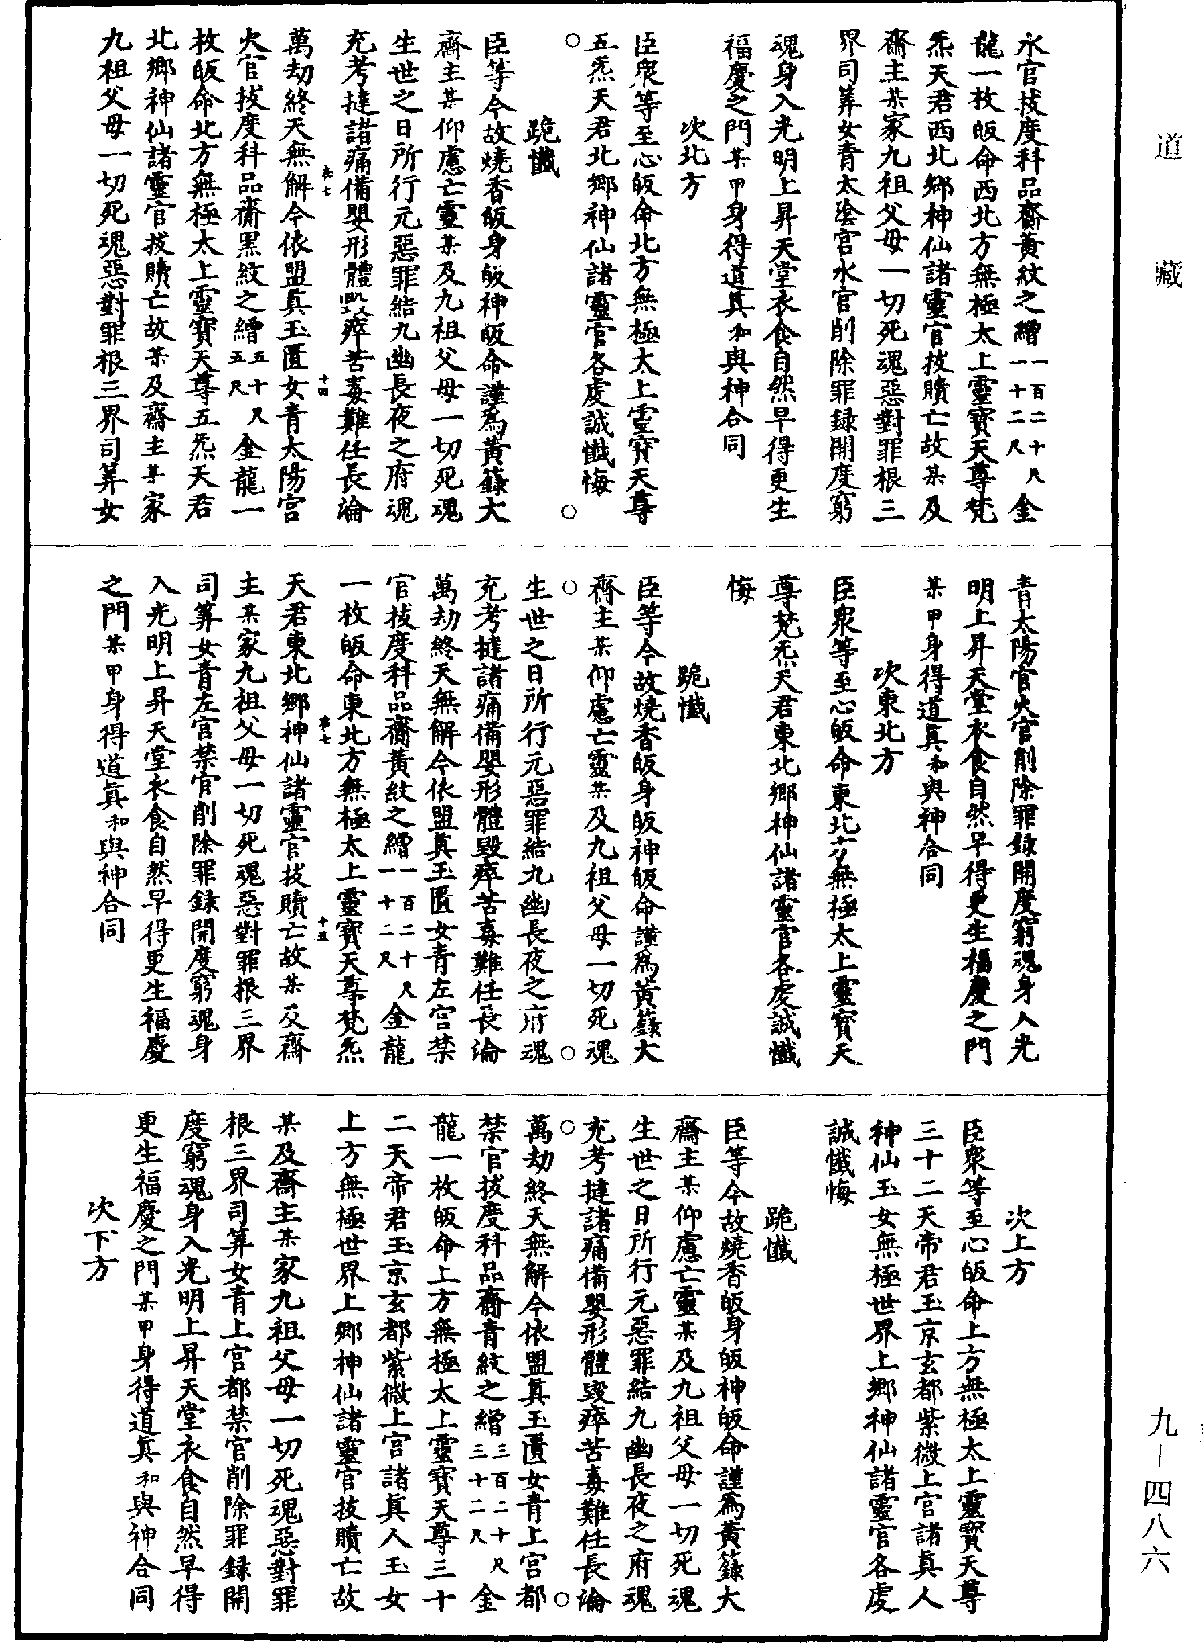 道藏
九—四八六
水官拔度科品齋黃紋之繒一百二十尺一十二尺金
龍一枚皈命西北方無極太上靈寶天尊梵
炁天君西北鄉神仙諸靈官拔贖亡故某及
齋主某家九祖父母一切死魂惡對罪根三
界司筭女青太陰官水官削除罪録開度窮
魂身入光明上昇天堂衣食自然早得更生
福慶之門某甲身得道真和與神合同
次北方
臣衆等至心皈命北方無極太上靈寶天尊
五炁天君北鄉神仙諸靈官各處誠懺悔
○○
跪懺
臣等今故燒香皈身皈神皈命謹為黃籙大
齋主某仰慮亡靈某及九祖父母一切死魂
生世之日所行元惡罪結九幽長夜之府魂
充考撻諸痛備嬰形體毀瘁苦毒難任長淪
萬劫終天無解今依盟真玉匱女青太陽宫
火官拔度科品齋黑紋之繒五十尺五尺金龍一
枚皈命北方無極太上靈寶天尊五炁天君
北鄉神仙諸靈官拔贖亡故某及齋主某家
九祖父母一切死魂惡對罪根三界司筭女
青太陽官火官削除罪録開度窮魂身入光
明上昇天堂衣食自然早得更生福慶之門
某甲身得道真和與神合同
次東北方
臣衆等至心皈命東北方無極太上靈寶天
尊梵炁天君東北鄉神仙諸靈官各處誠懺
悔
跪懺
臣等今故燒香皈身皈神皈命謹為黃籙大
齋主某仰慮亡靈某及九祖父母一切死魂
○○
生世之日所行元惡罪結九幽長夜之府魂
充考撻諸痛備嬰形體毀瘁苦毒難任長淪
萬劫終天無解今依盟真玉匱女青左宫禁
官拔度科品齋黃紋之繒一百二十尺一十二尺金龍
一枚皈命東北方無極太上靈寶天尊梵炁
天君東北鄉神仙諸靈官拔贖亡故某及齋
主某家九祖父母一切死魂惡對罪根三界
司筭女青左官禁官削除罪録開度窮魂身
入光明上昇天堂衣食自然早得更生福慶
之門某甲身得道真和與神合同
次上方
臣衆等至心皈命上方無極太上靈寶天尊
三十二天帝君玉京玄都紫微上宫諸真人
神仙玉女無極世界上鄉神仙諸靈官各處
誠懺悔
跪懺
臣等今故燒香皈身皈神皈命謹為黃籙大
齋主某仰慮亡靈某及九祖父母一切死魂
生世之日所行元惡罪結九幽長夜之府魂
充考撻諸痛備嬰形體毀瘁苦毒難任長淪
○○
萬劫終天無解今依盟真玉匱女青上宫都
禁官拔度科品齋青紋之繒三百二十尺三十二尺金
龍一枚皈命上方無極太上靈寶天尊三十
二天帝君玉京玄都紫微上宫諸真人玉女
上方無極世界上鄉神仙諸靈官拔贖亡故
某及齋主某家九祖父母一切死魂惡對罪
根三界司筭女青上官都禁官削除罪録開
度窮魂身入光明上昇天堂衣食自然早得
更生福慶之門某甲身得道真和與神合同
次下方